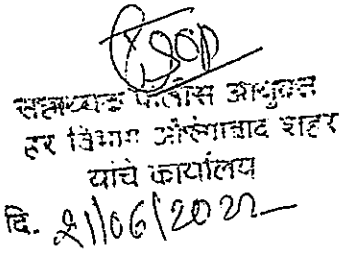 सहाय्यक पोलीस आयुक्त
विभाग औरंगाबाद शहर
यांचे कार्यालय
दि. २१/06/2022